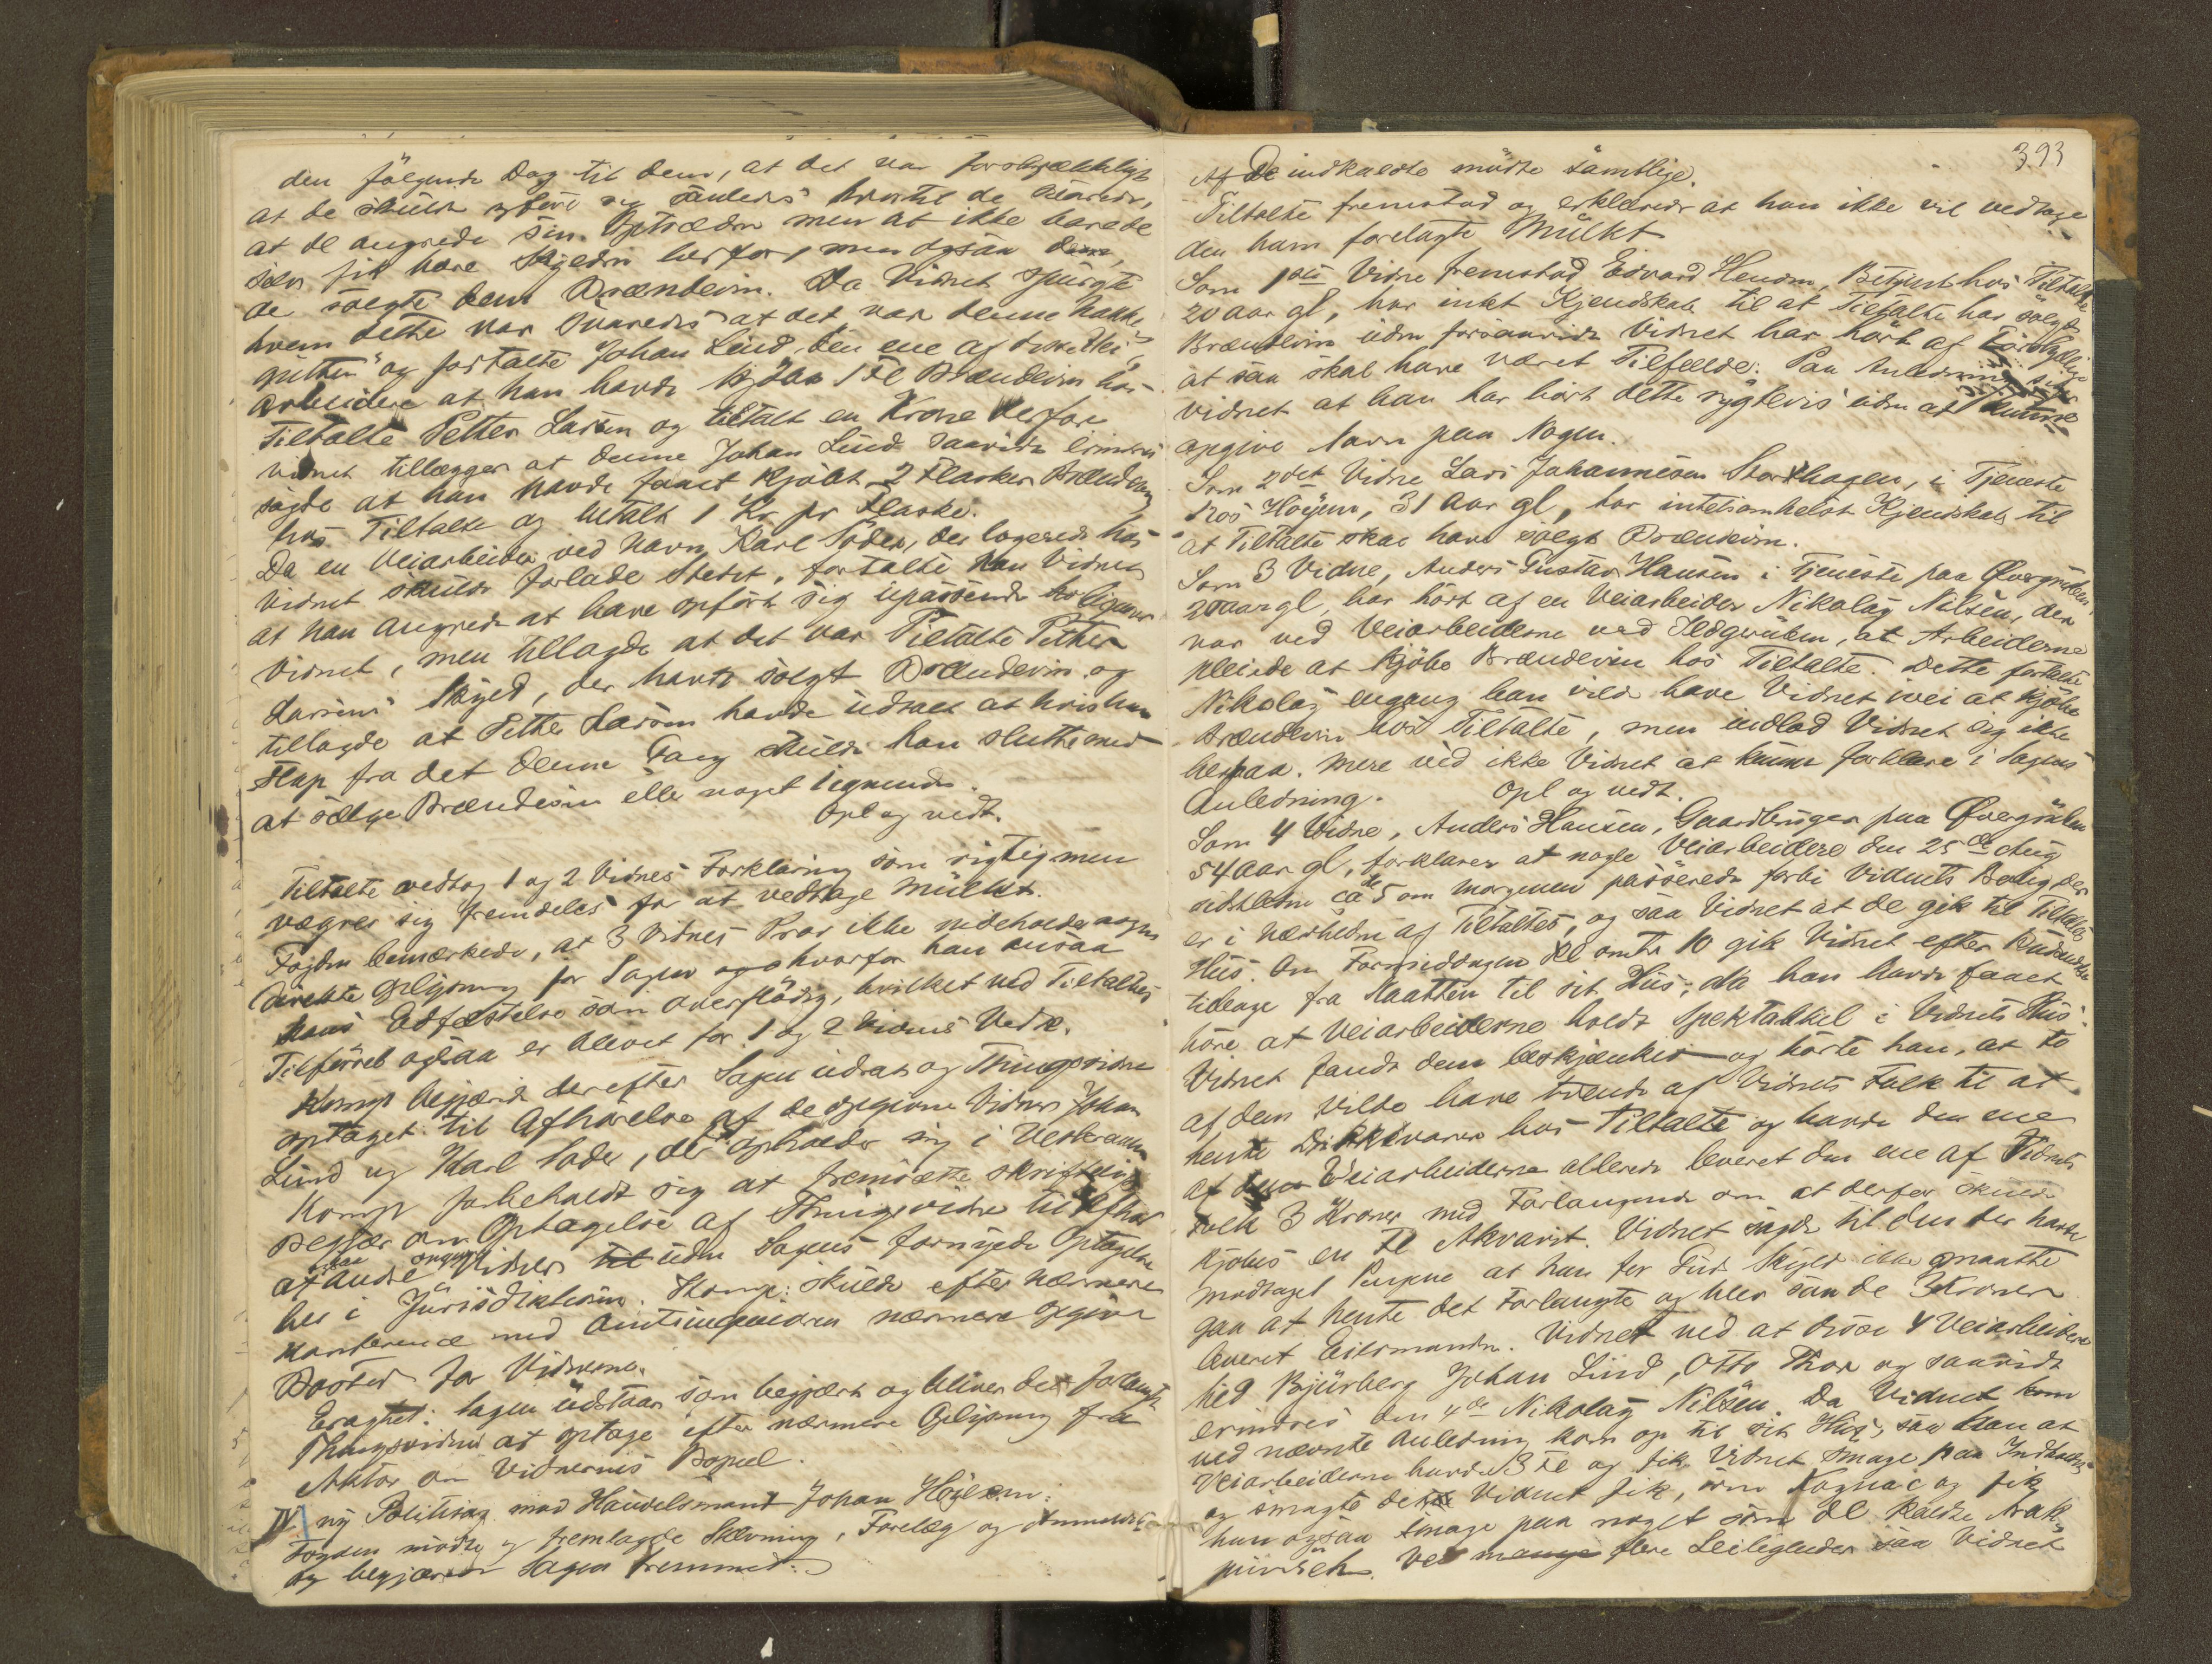 den følgende Dag til dem, at det var forskjækkeligt
at de skulde opføre sig saaledes hvortil de svarede,
at de angrede sin Optræden men at ikke barede
selv fik have Skylden herfor, men ogsaa den,
de solgte dem Brændevin. Da Vidnet spurgte
hvem dette var svaredes at det var denne
gutten" og fortalte Johan Lind, den ene af
arbeidere at han havde kjøbt 1 Fl Brændevin hos
Tiltalte Petter Larsen og betalt en Krone derfor
Vidnet tillægger at denne Johan Lind saavidt erindres
sagde at han havde faaet kjøbt 2 Flasker Brændevin
hos Tiltalte og betalt 1 Kr pr Flaske.
Da en Veiarbeider ved Navn Karl Söder, der logerede hos
Vidnet skulde forlade Stedet, fortalte han Vidnet
at han angrede at have opført sig upassende
Vidnet, men tillagde at det var Tiltalte Petter
Larsens Skyld, der havde solgt Brændevin og
tillagde at Petter Larsen havde udtalt at hvis han
slap fra det denne Gang skulde han slutte med
at sælge Brændevin eller noget lignende.
Opl og vedt.
Tiltalte vedtog 1 og 2 Vidnes Forklaring som rigtig men
vægrer sig fremdeles for at vedtage Mulkt.
Fogden bemærkede, at 3 Vidnes Prov ikke indeholder nogen
direkte Oplysning for Sagen og hvorfor han ansaa
hans Edfæstelse som overflødig, hvilket ved Tiltaltes
Tilførsel ogsaa er blevet for 1 og 2 Vidnes Vedk.
Komp begjærede derefter Sagen udsat og Thingsvidne
optaget til Afhørelse af de opgivne Vidner Johan
Lind og Karl Soder, der opholder sig i
Komp forbeholdt sig at fremsætte skriftlig
Begjær om Optagelse af Thingsvidne til Afhør
af andre Vidner uden Sagens fornyede Optagelse
her i Jurisdiktionen. Komp: skulde efter nærmere
Konference med Amtsingeniøren nærmere opgive
Bosted for Vidnerne.
Eragtet: Sagen udstaar som begjært og bliver det forlangte
Thingsvidne at optage efter nærmere Oplysning fra
Aktor om Vidnernes Bopæl.
IV ny Politisag mod Handelsmand Johan Höiem:
Fogden mødte og fremlagde Stævning, Forelæg og Anmeldelse
og begjærede Sagen fremmet:
393
Af De indkaldte mødte samtlige.
Tiltalte fremstod og erklærede at han ikke vil vedtage
den ham forelagte Mulkt
Som 1ste Vidne fremstod Edvard Hendr., Betjent hos Tiltalte
20 aar gl, har intet Kjendskab til at Tiltalte har solgt
Brændevin uden forsaavidt Vidnet har hørt af
at saa skal have været Tilfælde. Paa Anledning siger
Vidnet at han har hørt dette rygtevis uden at kunne
opgive Navn paa Nogen.
Som 2det Vidne Lars Johannesen Storhagen, i Tjeneste
hos Höyem, 31 Aar gl, har intetsomhelst Kjendskab til
at Tiltalte skal have solgt Brændevin.
Som 3 Vidne, Anders Gustav Hansen i Tjeneste paa
20 aar gl, har hørt af en Veiarbeider Nikolay Nilsen, der
var ved Veiarbeiderne ved , at Arbeiderne
pleiede at kjøbe Brændevin hos Tiltalte. Dette fortalte
Nikolay engang han vilde have Vidnet ivei at kjøbe
Brændevin hos Tiltalte, men indlod Vidnet sig ikke
herpaa. Mere ved ikke Vidnet at kunne forklare i Sagens
Anledning. Opl og vedt.
Som 4 Vidne, Anders Hansen, Gaardbruger paa
54 aar gl, forklarer at nogle Veiarbeidere den 25de Aug
sidstleden ca kl 5 om Morgenen passerede forbi Vidnets Bolig der
er i Nærheden af Tiltaltes, og saa Vidnet at de gik til Tiltaltes
Hus. Om Formiddagen Kl omtr 10 gik Vidnet efter
tilbage fra Slaatten til sit Hus; da han havde faaet
høre at Veiarbeiderne holdt Spektakkel i Vidnets Hus.
Vidnet fandt dem beskjænket og hørte han, at to
af dem vilde have tvende af Vidnets Folk til at
hente Drikkevarer hos Tiltalte og havde den ene
af Veiarbeiderne allerede leveret den ene af Vidnets
Folk 3 Kroner med Forlangende om at derfor skulde
kjøbes en Fl Akvavit. Vidnet sagde til den der havde
modtaget Pengene at han for Guds Skyld ikke maatte
gaa at hente det Forlangte og blev saa de 3 Kroner
leveret Eiermanden. Vidnet ved at disse 4 Veiarbeidere
hed Bjurberg Johan Lind, Otto Thor og saavidt
erindres den 4de Nikolay Nilsen. Da Vidnet
ved nævnte Anledning kom op til sit Hus, saa han at
Veiarbeiderne havde 3 Fl og fik Vidnet smage paa Indholdet
og smagte det Vidnet fik, som Kognac og fik
han ogsaa smage paa noget som de kaldte Arak-
punsch. Ved mange flere Leiligheder saa Vidnet